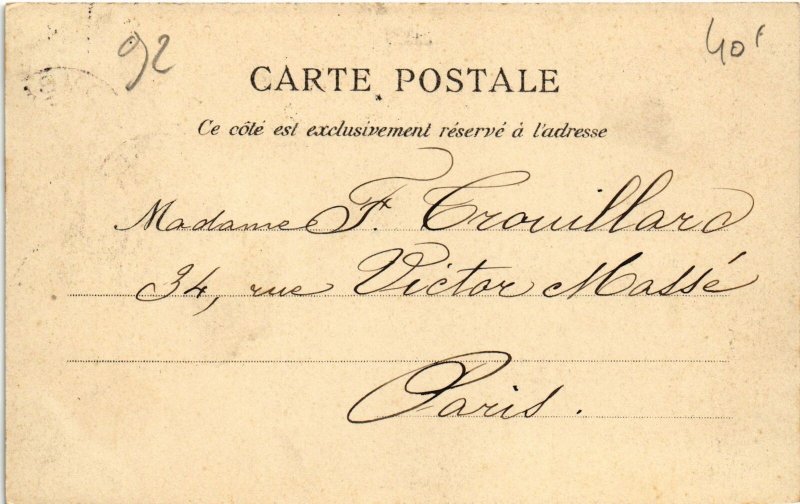 92
40f
CARTE POSTALE
Ce côté est exclusivement réservé à l'adresse
Madame F. Trouillard
34, rue Victor Massé
Paris.